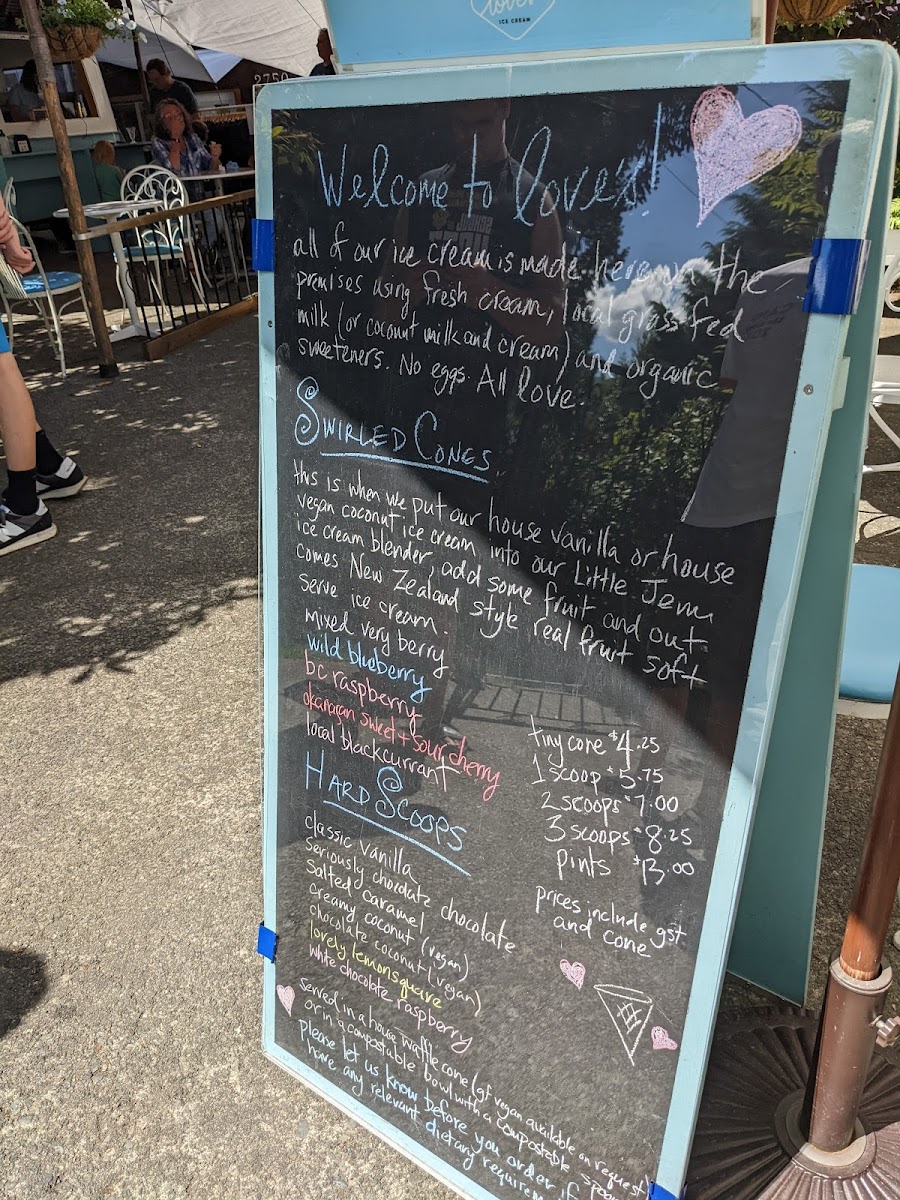 love's
ICE CREAM
2750
Welcome to loves!
all of our ice cream is made here on the
premises using fresh cream, local grass fed
milk (or coconut milk and cream) and organic
sweeteners. No eggs. All love.
SWIRLED CONES
this is when we put our house vanilla or house
vegan coconut ice cream into our Little Jem
ice cream blender, add some fruit and out
comes New Zealand style real fruit soft
serve ice cream.
mixed very berry
wild blueberry
bc raspberry
okanagan sweet + sour cherry
local blackcurrant
tiny cone $4.25
1 scoop $5.75
2 scoops $7.00
3 scoops $8.25
pints $13.00
prices include gst
and cone
HARD SCOOPS
classic vanilla
Seriously chocolate chocolate
Salted caramel
creamy coconut (vegan)
chocolate coconut (vegan)
lovely lemonsquare
white chocolate raspberry
served in a house waffle cone (gf vegan available on request)
or in a compostable bowl with a compostable spoon
please let us know before you order if
have any relevant dietary